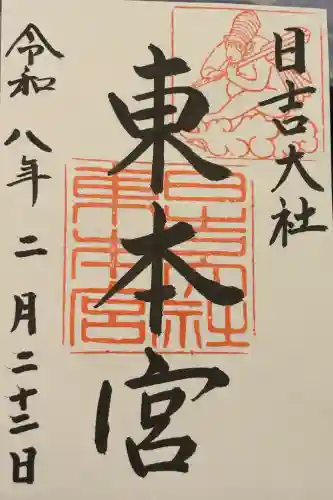 日吉大社
東本宮
令和八年二月二十二日
日吉大社
東本宮